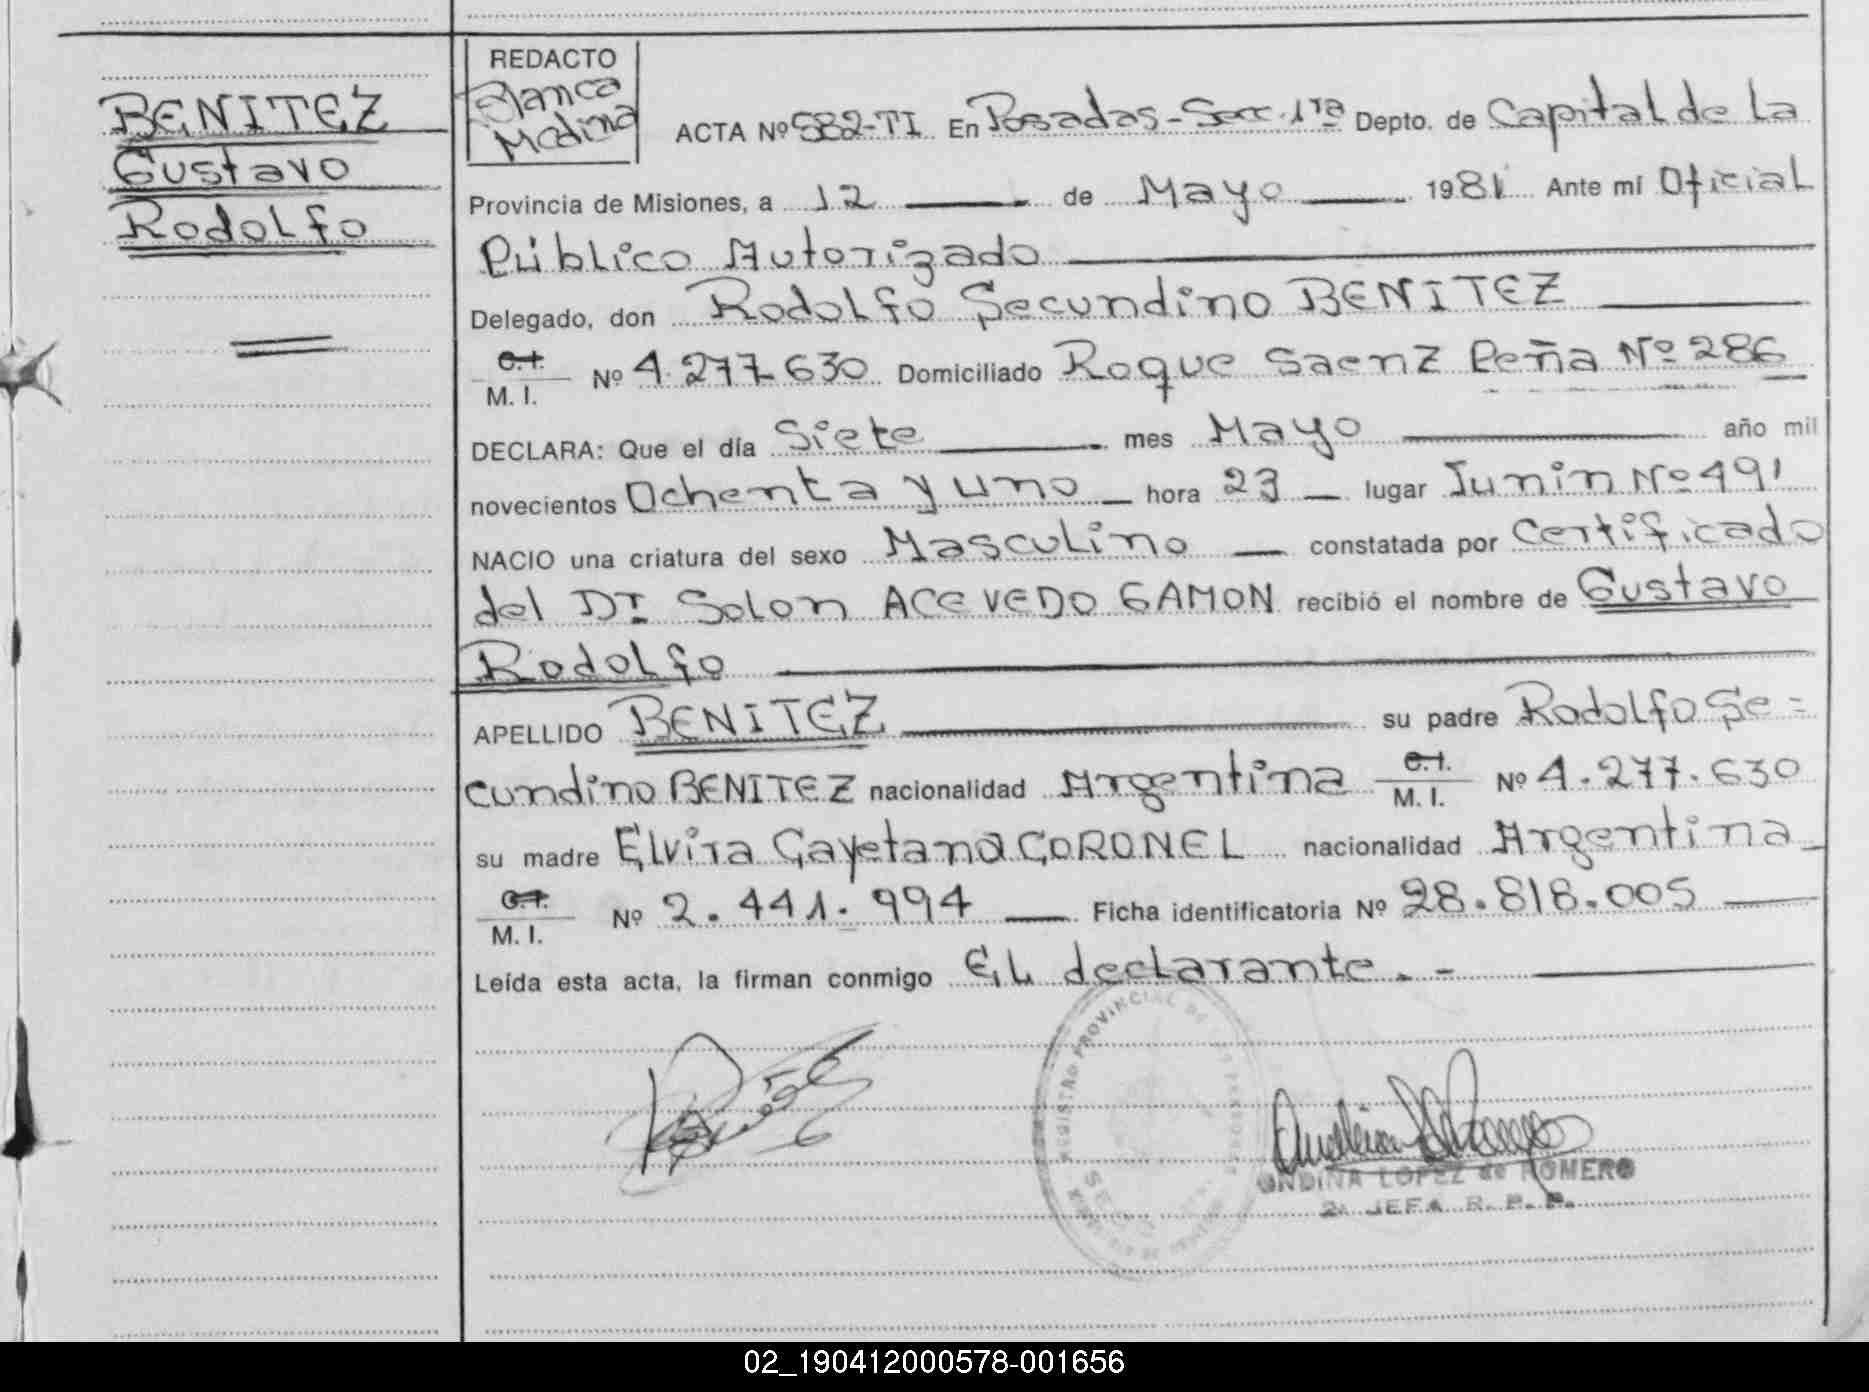 BENITEZ
Gustavo
Rodolfo
REDACTO
Blanca
Medina
ACTA Nº 582-TI En Posadas-Secc. 1ra Depto. de Capital de la
Provincia de Misiones, a 12 de Mayo 1981 Ante mí Oficial
Público Autorizado
Delegado, don Rodolfo Secundino BENITEZ
C.I.
M. I. Nº 4.277.630 Domiciliado Roque Saenz Peña Nº 286
DECLARA: Que el día Siete mes Mayo año mil
novecientos Ochenta y uno hora 23 lugar Junin Nº 491
NACIO una criatura del sexo Masculino constatada por Certificado
del Dr Solon ACEVEDO GAMON recibió el nombre de Gustavo
Rodolfo
APELLIDO BENITEZ su padre Rodolfo Se=
cundino BENITEZ nacionalidad Argentina C.I. M. I. Nº 4.277.630
su madre Elvira Cayetana CORONEL nacionalidad Argentina
C.I.
M. I. Nº 2.441.994 Ficha identificatoria Nº 28.818.005
Leída esta acta, la firman conmigo EL declarante.-
REGISTRO PROVINCIAL DE LAS PERSONAS
ONDINA LOPEZ de ROMERO
2a JEFA R. P. P.
02_190412000578-001656